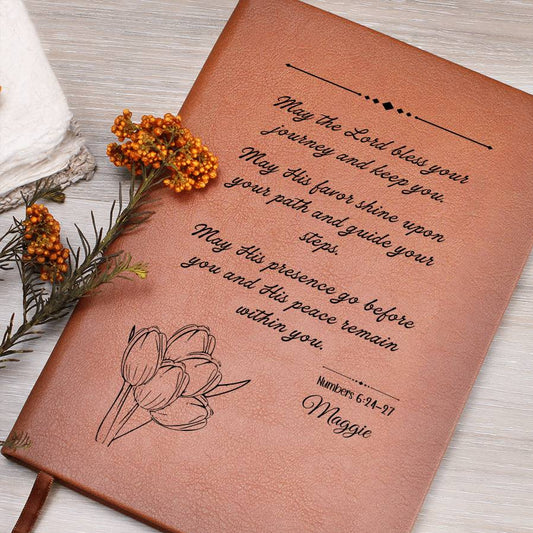 May the Lord bless your
journey and keep you.
May His favor shine upon
your path and guide your
steps.
May His presence go before
you and His peace remain
within you.
Numbers 6:24-27
Maggie